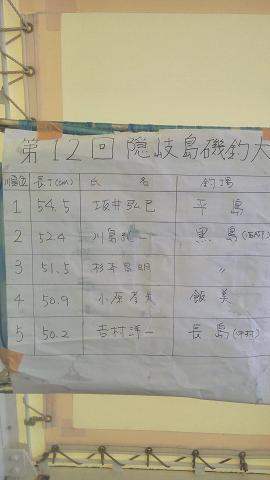 第12回 隠岐島磯釣大
順位 長寸(cm) 氏 名 釣場
1 54.5 坂井弘巳 平島
2 52.4 川島 一 黒島
3 51.5 杉本昌明 〃
4 50.9 小原孝夫 飯美
5 50.2 吉村洋一 長島(中村)